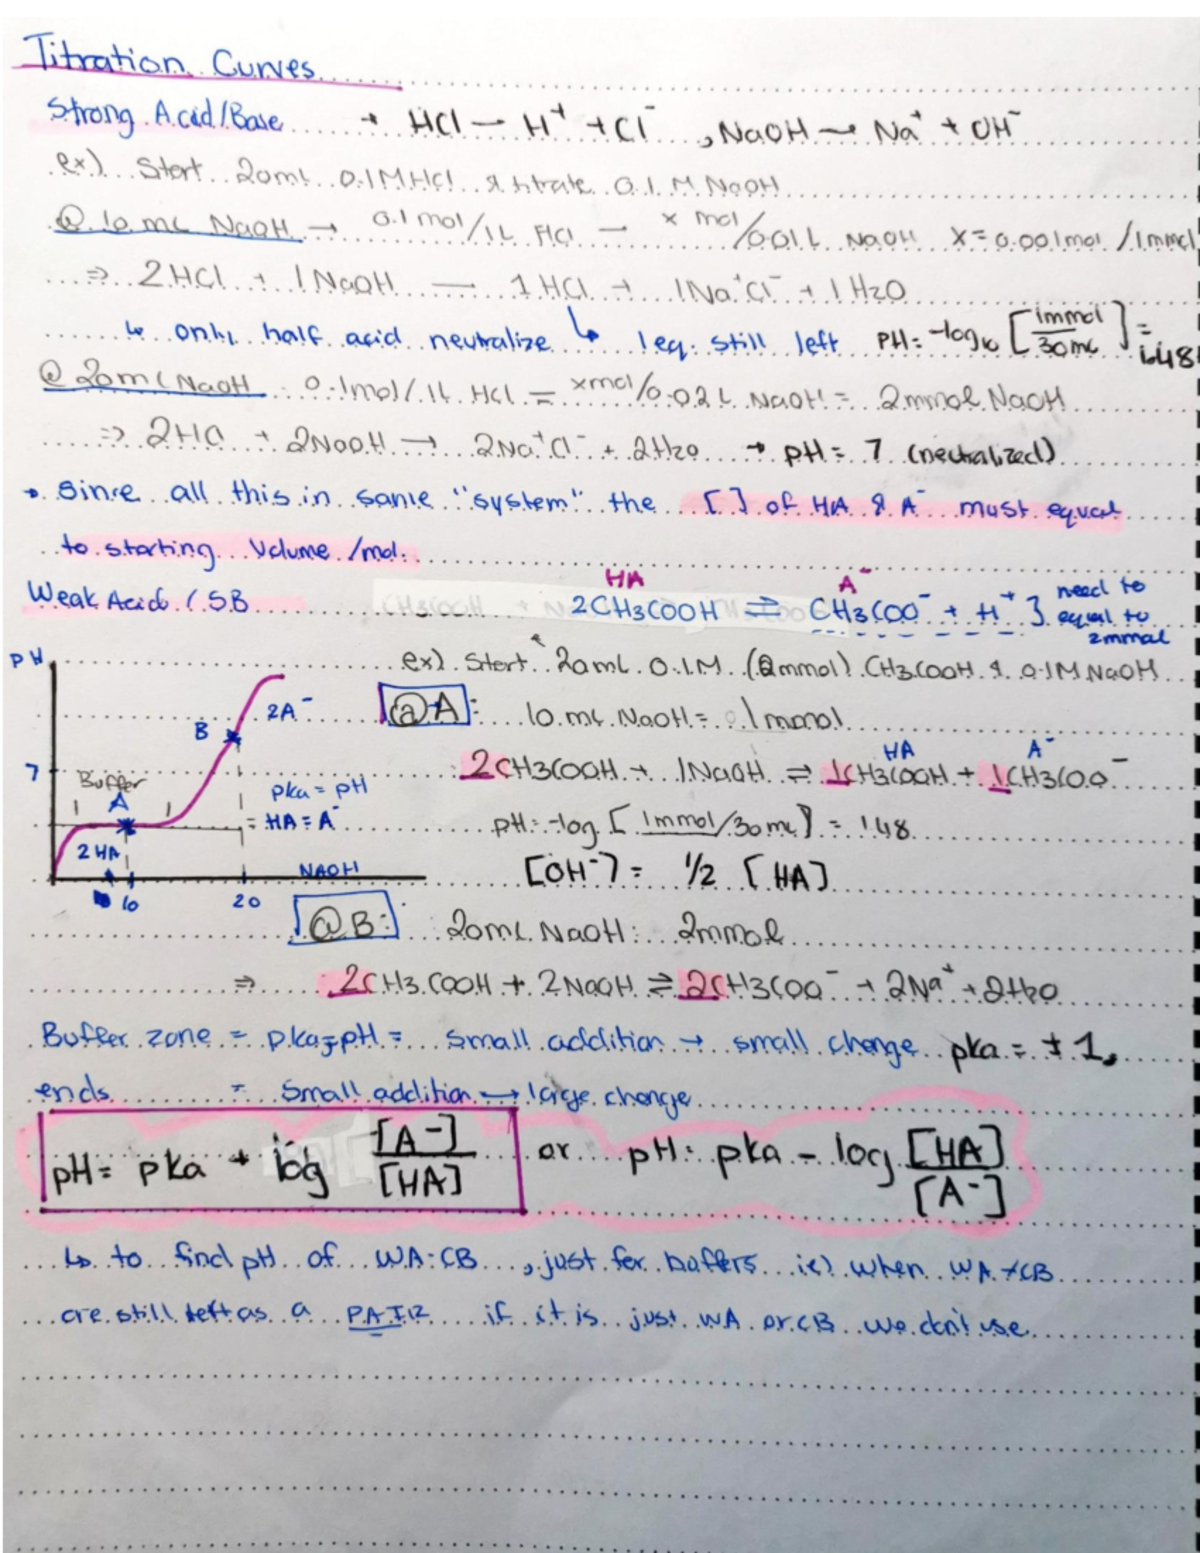 Titration Curves
Strong Acid/Base → HCl → H⁺ + Cl⁻ , NaOH → Na⁺ + OH⁻
ex) Start 20mL 0.1M HCl & titrate 0.1 M NaOH
@ 10 mL NaOH → 0.1 mol/1L HCl — x mol/0.01 L NaOH x = 0.001mol /1mmol
⇒ 2HCl + 1NaOH — 1HCl + 1Na⁺Cl⁻ + 1H2O
↳ only half acid neutralize ↳ 1eq. still left pH = -log₁₀ [1mmol/30mL] = 1.48
@ 20mL NaOH 0.1mol/1L HCl = xmol/0.02L NaOH = 2mmol NaOH
⇒ 2HCl + 2NaOH → 2Na⁺Cl⁻ + 2H2O → pH = 7 (neutralized)
• Since all this in same "system" the [ ] of HA & A⁻ must equal
to starting volume /mol.
HA A⁻
Weak Acid / SB 2CH3COOH ⇌ CH3COO⁻ + H⁺ } need to equal to 2mmol
ex) Start 20mL 0.1M (2mmol) CH3COOH & 0.1M NaOH
@A: 10 mL NaOH = 0.1mmol
HA A⁻
2CH3COOH + 1NaOH ⇌ 1CH3COOH + 1CH3COO⁻
pH = -log [1mmol/30mL] = 1.48
[OH⁻] = 1/2 [HA]
pH
2A⁻
B
7
Buffer
A
pka = pH
= HA = A⁻
2HA
NAOH
10 20
@B: 20mL NaOH: 2mmol
⇒ 2CH3COOH + 2NaOH ⇌ 2CH3COO⁻ + 2Na⁺ + 2H2O
Buffer zone = pka=pH = small addition → small change pka = ±1.
ends = small addition → large change
pH = pka + log [A⁻]/[HA] or pH = pka - log [HA]/[A⁻]
↳ to find pH of WA:CB , just for buffers ie) when WA + CB
are still left as a PAIR if it is just WA or CB we don't use